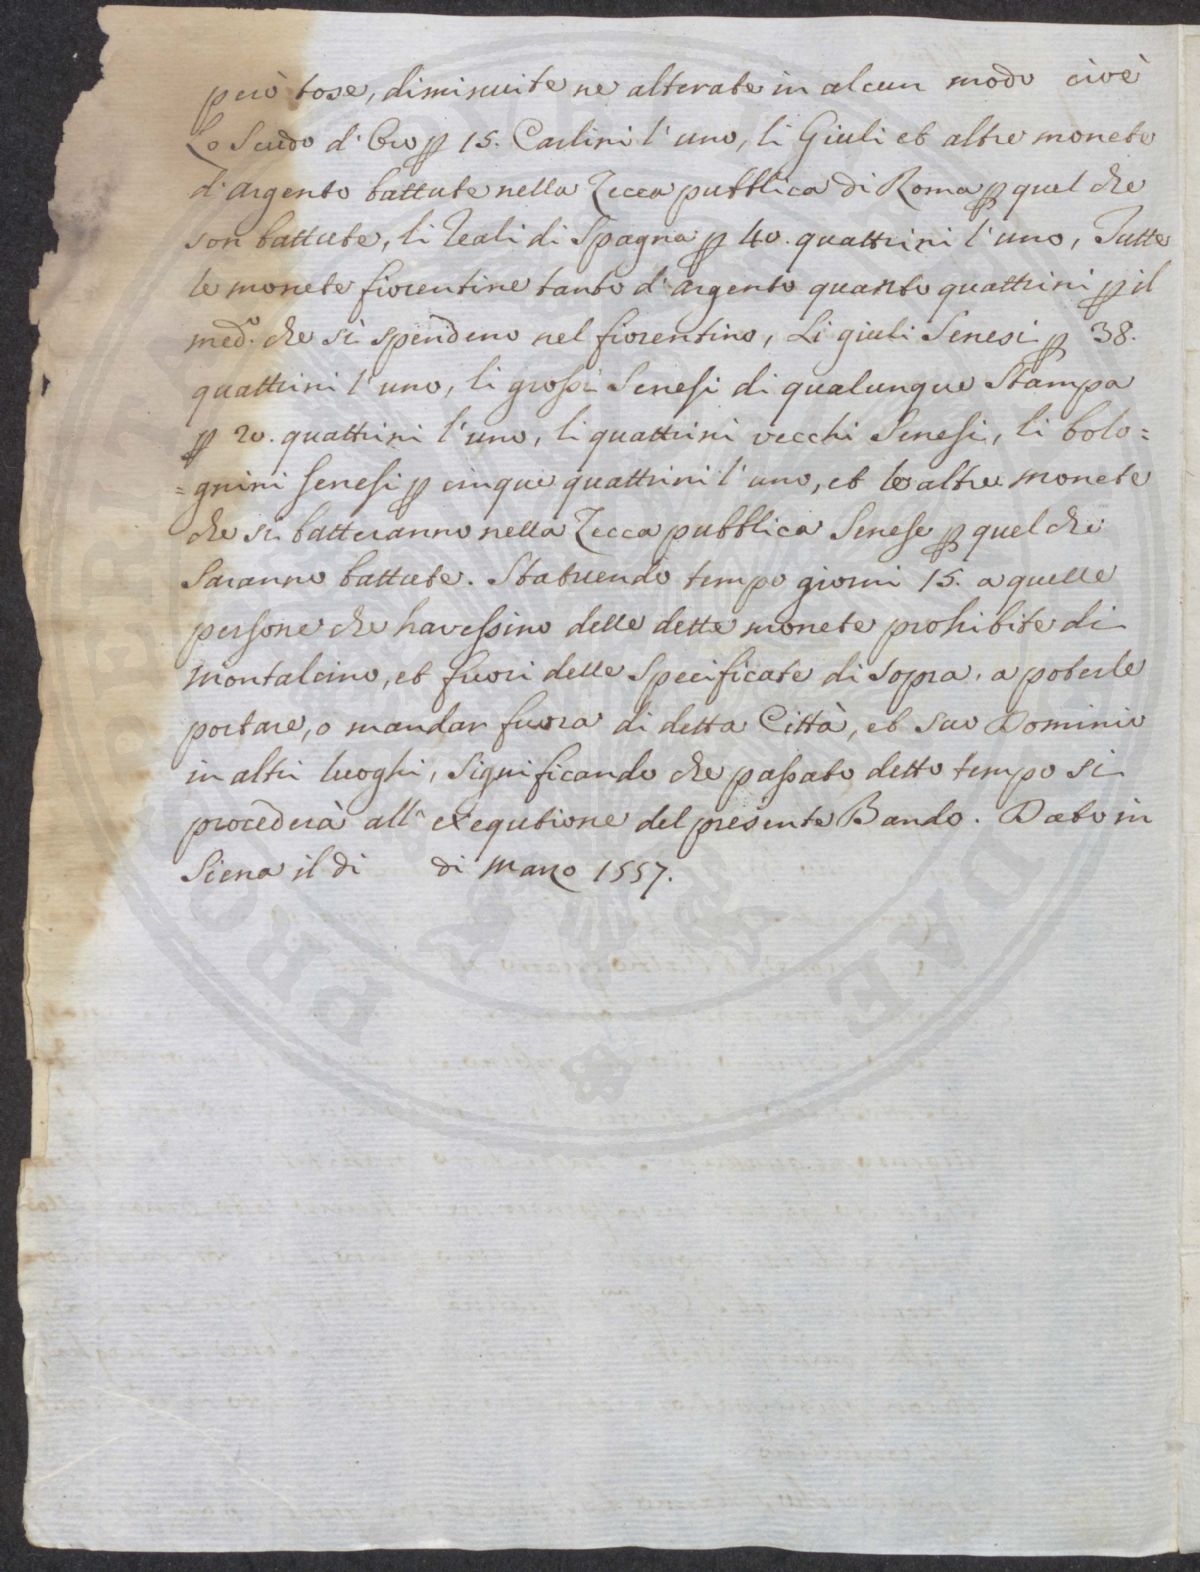 però tose, diminuite ne alterate in alcun modo cioè
Lo Scudo d'Oro p 15. Carlini l'uno, li Giuli et altre monete
d'argento battute nella Zecca pubblica di Roma p quel che
son battute, li Reali di Spagna p 40. quattrini l'uno, Tutte
le monete fiorentine tanto d'argento quanto quattrini p il
med.o che si spendeno nel fiorentino, Li giuli Senesi p 38.
quattrini l'uno, li grossi Senesi di qualunque Stampa
p 20. quattrini l'uno, li quattrini vecchi Senesi, li bolo=
=gnini Senesi p cinque quattrini l'uno, et le altre monete
che si batteranno nella Zecca pubblica Senese p quel che
Saranno battute. Statuendo tempo giorni 15. a quelle
persone che havessino delle dette monete prohibite di
Montalcino, et fuori delle Specificate di sopra, a poterle
portare, o mandar fuora di detta Città, et suo Dominio
in altri luoghi, Significando che passato detto tempo si
procederà all' exequtione del presente Bando. Dato in
Siena il di di Marzo 1557.